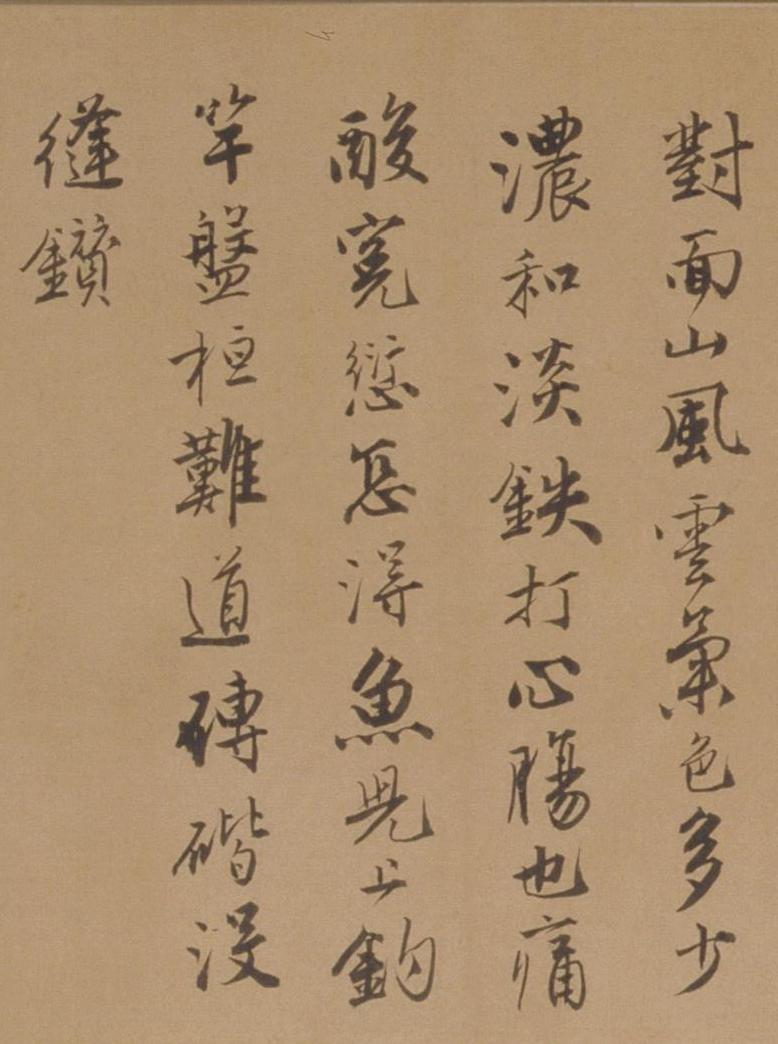 對面山風雲色多少
濃和淡鉄打心腸也痛
酸愆怎得魚兒上鉤
竿盤桓難道磚沒
縫鑽